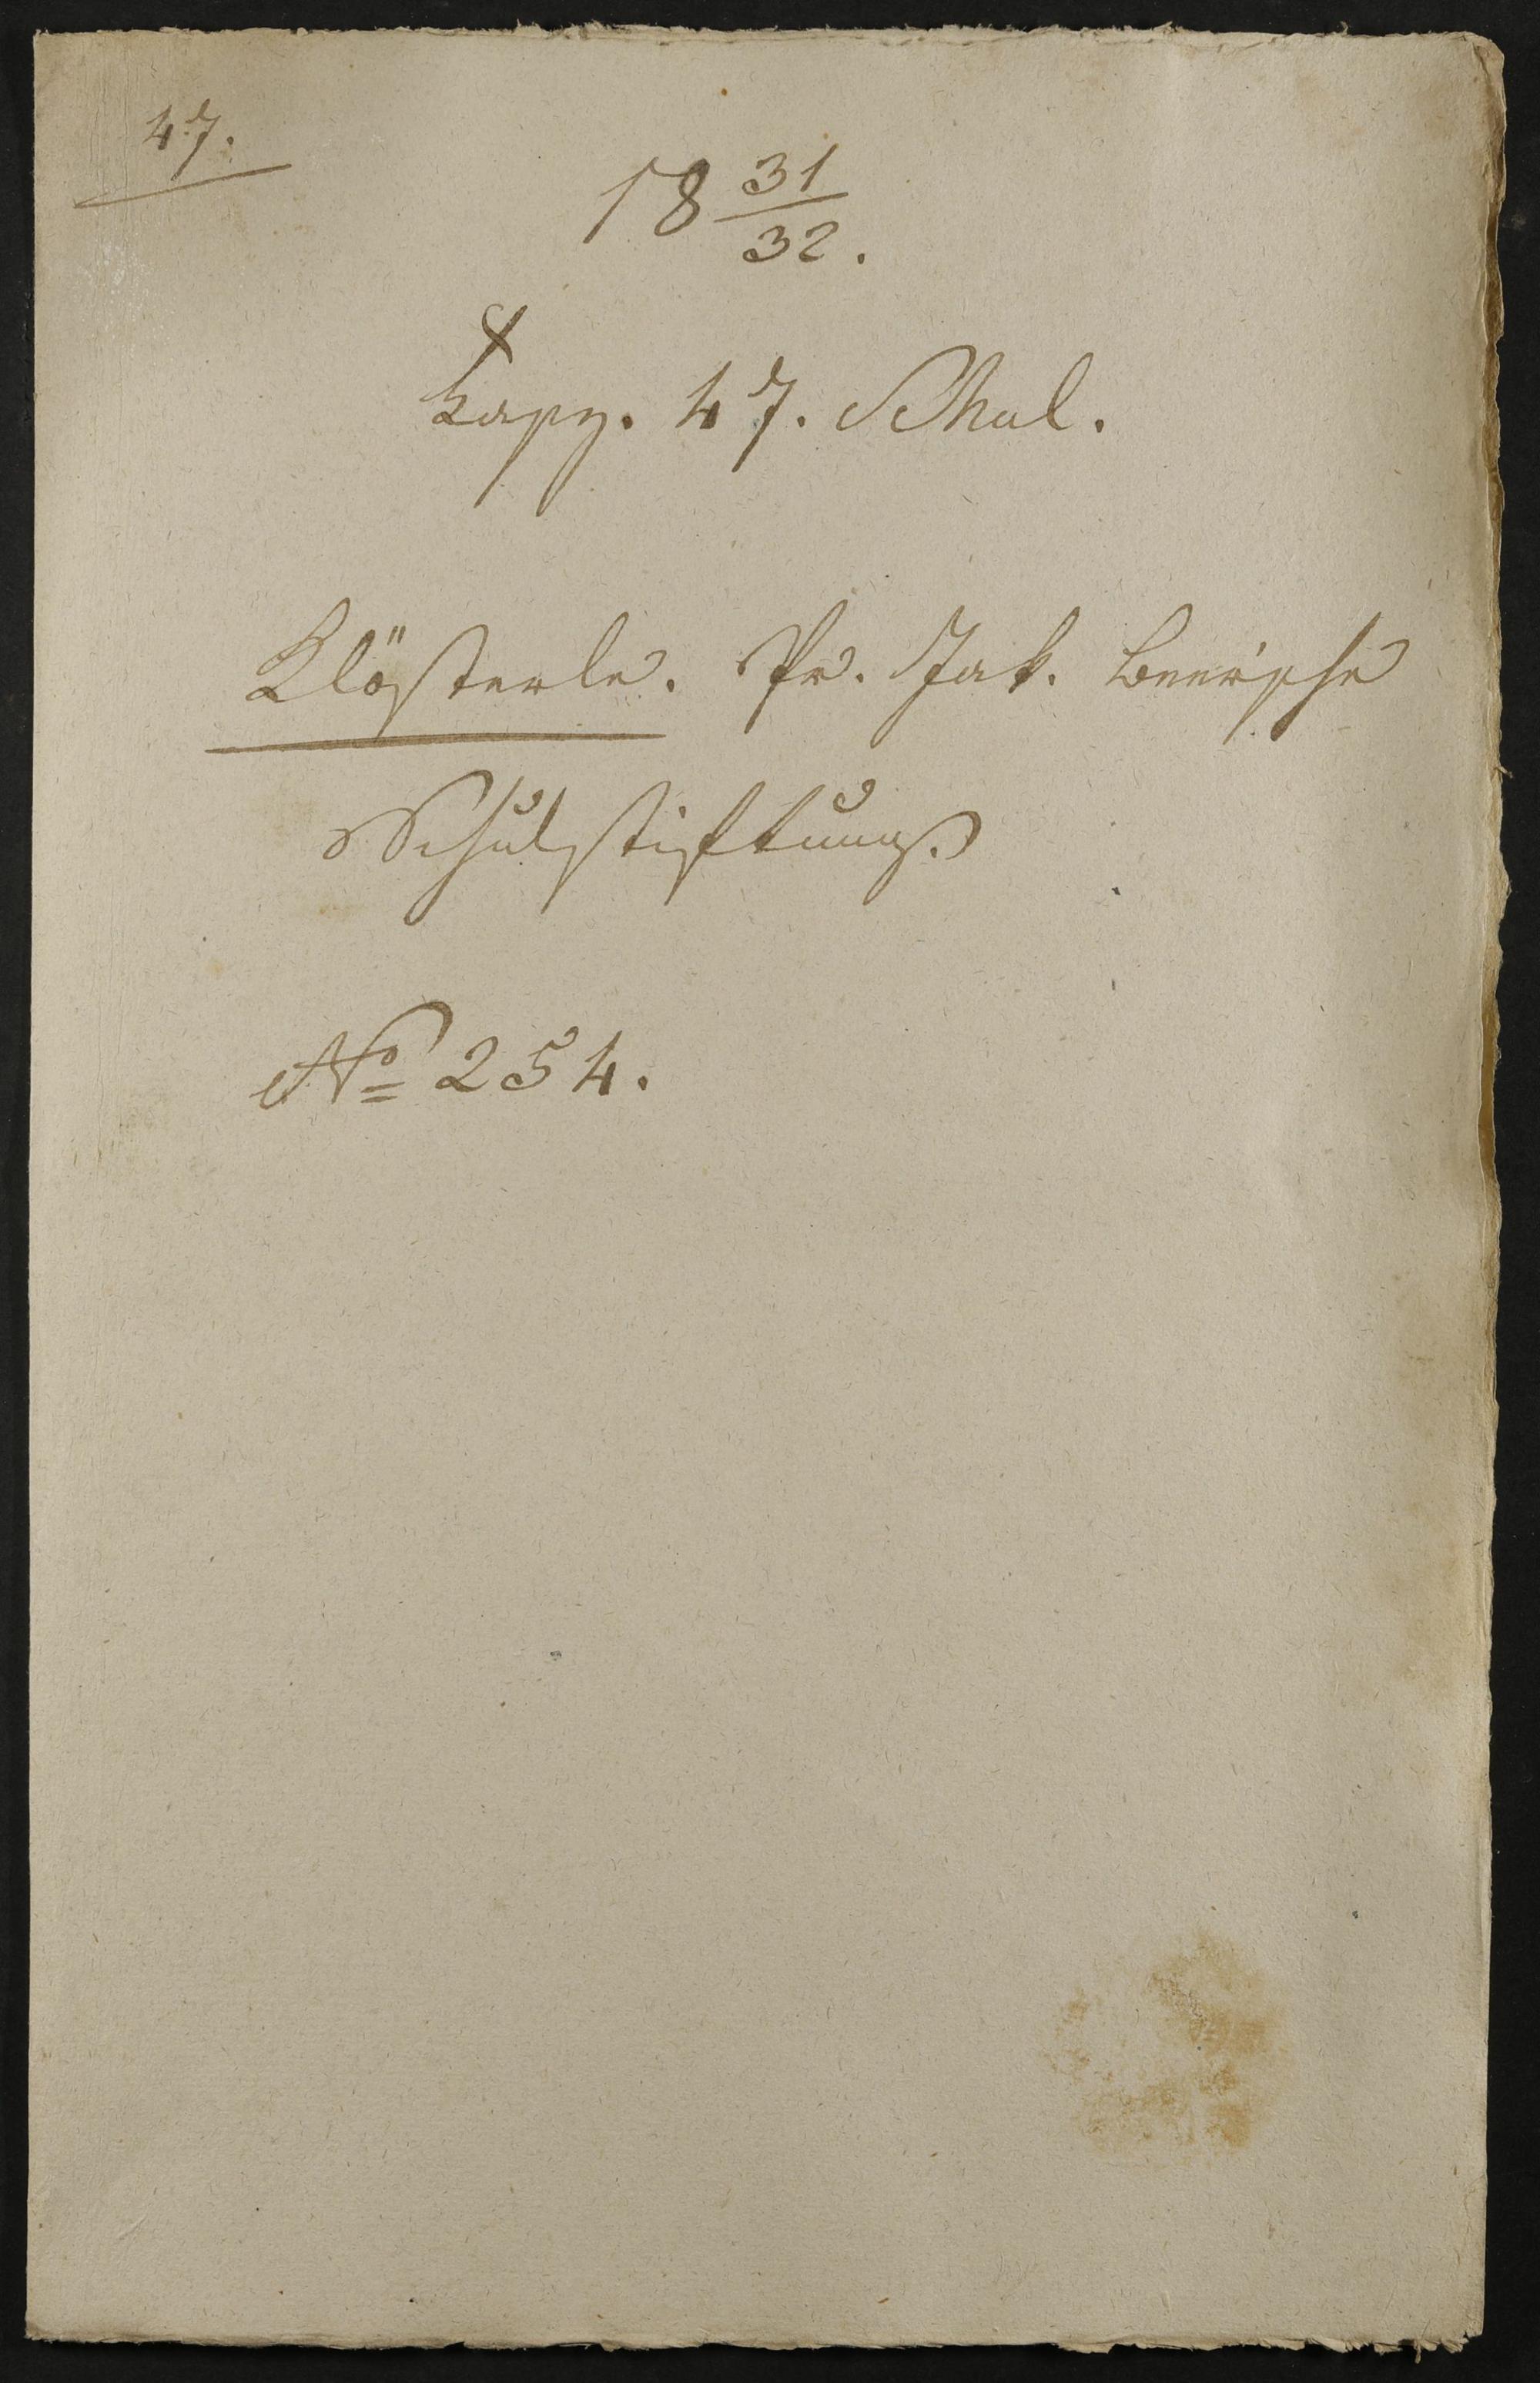 47.
18 31/32.
Fasz. 47. Schul.
Klösterle. Pr. Jak.
Schulstiftung.
No 254.